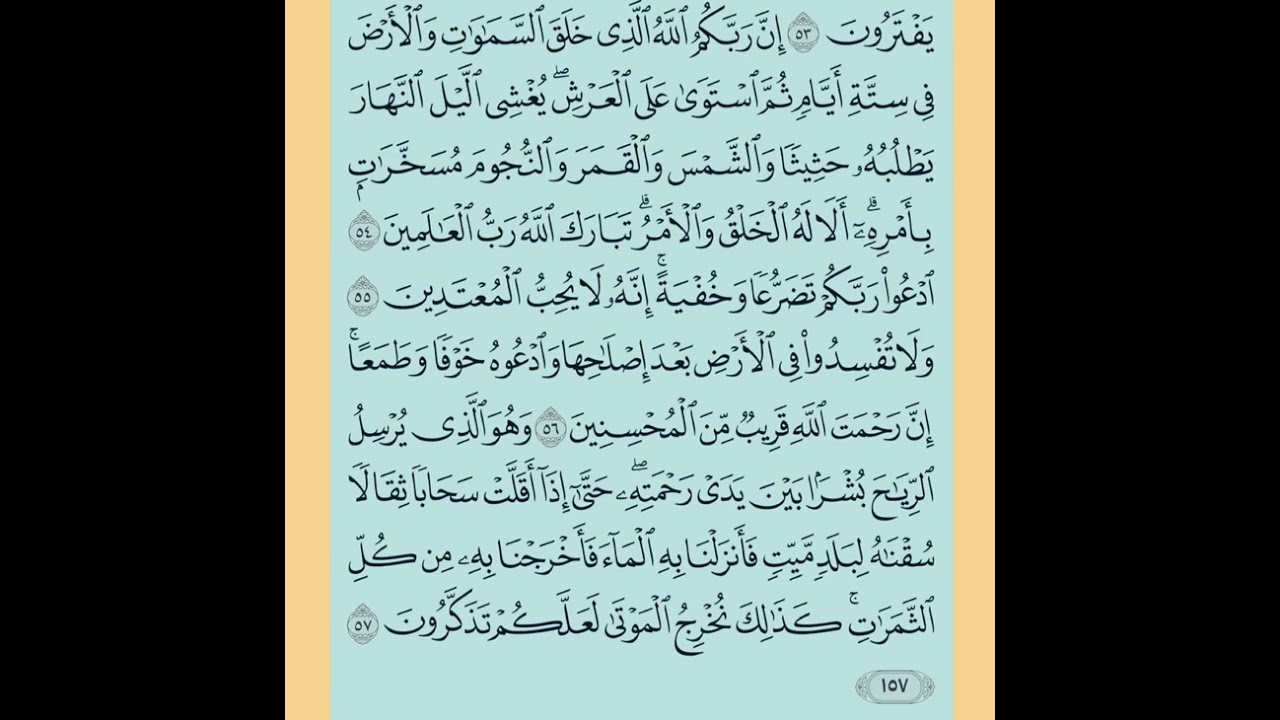 يَفۡتَرُونَ ٥٣ إِنَّ رَبَّكُمُ ٱللَّهُ ٱلَّذِى خَلَقَ ٱلسَّمَٰوَٰتِ وَٱلۡأَرۡضَ
فِى سِتَّةِ أَيَّامٖ ثُمَّ ٱسۡتَوَىٰ عَلَى ٱلۡعَرۡشِۖ يُغۡشِى ٱلَّيۡلَ ٱلنَّهَارَ
يَطۡلُبُهُۥ حَثِيثٗا وَٱلشَّمۡسَ وَٱلۡقَمَرَ وَٱلنُّجُومَ مُسَخَّرَٰتِۭ
بِأَمۡرِهِۦٓۗ أَلَا لَهُ ٱلۡخَلۡقُ وَٱلۡأَمۡرُۗ تَبَارَكَ ٱللَّهُ رَبُّ ٱلۡعَٰلَمِينَ ٥٤
ٱدۡعُواْ رَبَّكُمۡ تَضَرُّعٗا وَخُفۡيَةًۚ إِنَّهُۥ لَا يُحِبُّ ٱلۡمُعۡتَدِينَ ٥٥
وَلَا تُفۡسِدُواْ فِى ٱلۡأَرۡضِ بَعۡدَ إِصۡلَٰحِهَا وَٱدۡعُوهُ خَوۡفٗا وَطَمَعًاۚ
إِنَّ رَحۡمَتَ ٱللَّهِ قَرِيبٞ مِّنَ ٱلۡمُحۡسِنِينَ ٥٦ وَهُوَ ٱلَّذِى يُرۡسِلُ
ٱلرِّيَٰحَ بُشۡرَۢا بَيۡنَ يَدَىۡ رَحۡمَتِهِۦۖ حَتَّىٰٓ إِذَآ أَقَلَّتۡ سَحَابٗا ثِقَالٗا
سُقۡنَٰهُ لِبَلَدٖ مَّيِّتٖ فَأَنزَلۡنَا بِهِ ٱلۡمَآءَ فَأَخۡرَجۡنَا بِهِۦ مِن كُلِّ
ٱلثَّمَرَٰتِۚ كَذَٰلِكَ نُخۡرِجُ ٱلۡمَوۡتَىٰ لَعَلَّكُمۡ تَذَكَّرُونَ ٥٧
١٥٧